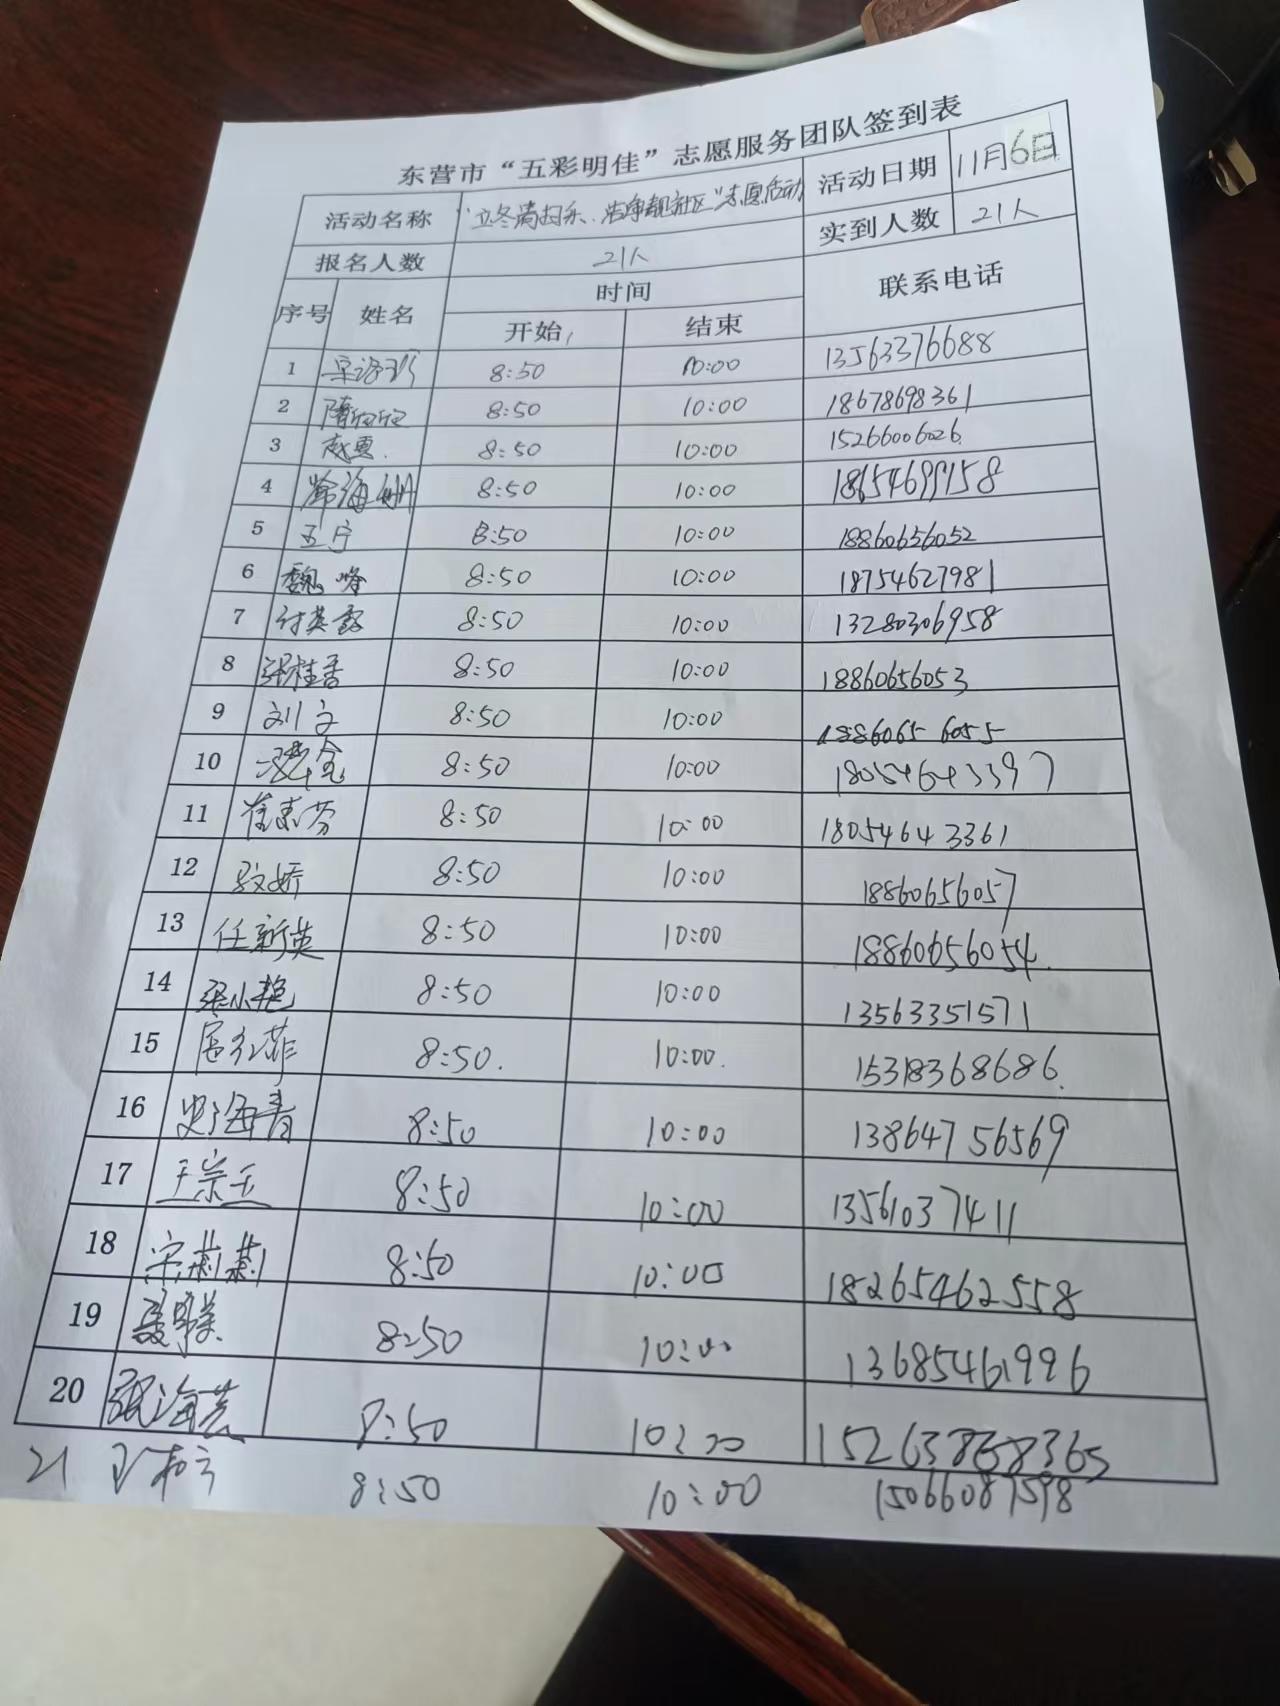 东营市“五彩明佳”志愿服务团队签到表
活动名称 “立冬清扫乐、洁净靓社区”志愿活动 活动日期 11月6日
报名人数 21人 实到人数 21人
序号 姓名 时间 联系电话
开始 结束
1 8:50 10:00 13563376688
2 隋欣欣 8:50 10:00 18678698361
3 8:50 10:00 15266006026
4 海 8:50 10:00 18654699958
5 王宁 8:50 10:00 18860656052
6 魏峰 8:50 10:00 18754627981
7 付英霞 8:50 10:00 13280306958
8 张桂香 8:50 10:00 18860656053
9 刘文 8:50 10:00 18860656055
10 金 8:50 10:00 18054643397
11 崔素芬 8:50 10:00 18054643361
12 娇 8:50 10:00 18860656057
13 任新英 8:50 10:00 18860656054
14 张小艳 8:50 10:00 13563351571
15 8:50 10:00 15318368686
16 史海青 8:50 10:00 13864756569
17 王宗玉 8:50 10:00 13561037411
18 宋莉莉 8:50 10:00 18265462558
19 8:50 10:00 13685461996
20 张海芸 8:50 10:00 15263868365
21 8:50 10:00 15066087598